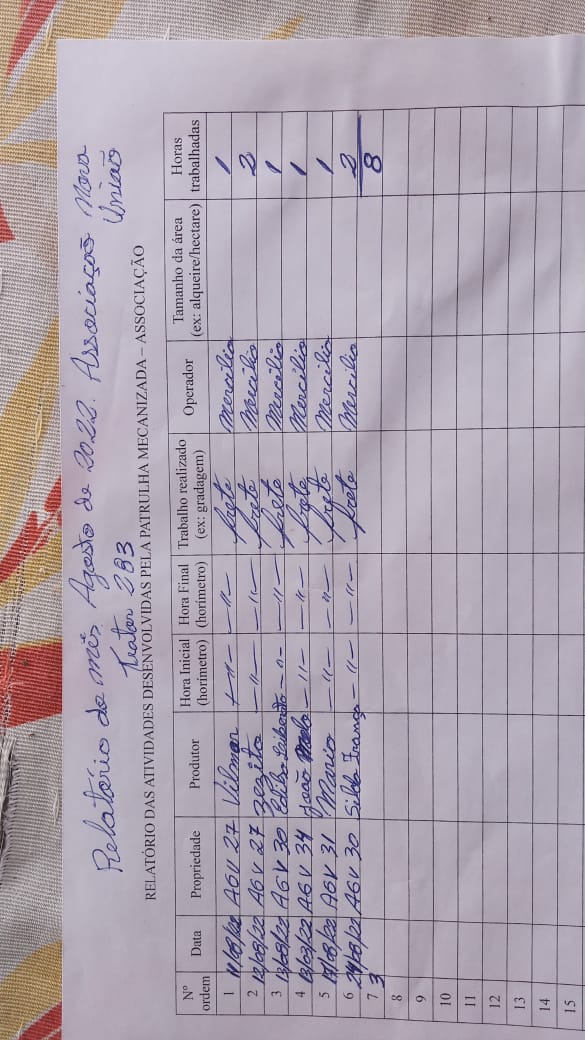 Relatório do mês Agosto de 2022. Associação Nova
União
Trator 283
RELATÓRIO DAS ATIVIDADES DESENVOLVIDAS PELA PATRULHA MECANIZADA – ASSOCIAÇÃO
Nº ordem Data Propriedade Produtor Hora Inicial (horimetro) Hora Final (horimetro) Trabalho realizado (ex: gradagem) Operador Tamanho da área (ex: alqueire/hectare) Horas trabalhadas
1 11/08/22 AGV 27 Vilmar -"- -"- frete Mercilio 1
2 12/08/22 AGV 27 Zezito -"- -"- frete Mercilio 2
3 13/08/22 AGV 30 -"- -"- frete Mercilio 1
4 13/08/22 AGV 34 João Melo -"- -"- frete Mercilio 1
5 17/08/22 AGV 31 Mario -"- -"- frete Mercilio 1
6 24/08/22 AGV 30 Silda França -"- -"- frete Mercilio 2
7 3 8
8
9
10
11
12
13
14
15